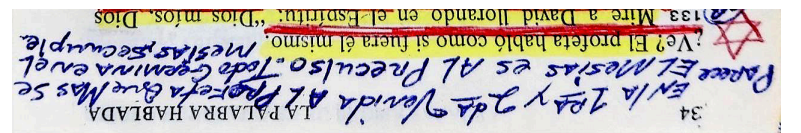 34 LA PALABRA HABLADA
EN la 1RA y 2da Venida AL PROFETA QUE MAS SE
PARECE EL MESIAS es AL PRECULSO. Todo GERMINA EN EL
MESIAS, SE CUMPLE.
¿Ve? El profeta habló como si fuera él mismo.
133 Mire a David llorando en el Espíritu: "Dios míos, Dios